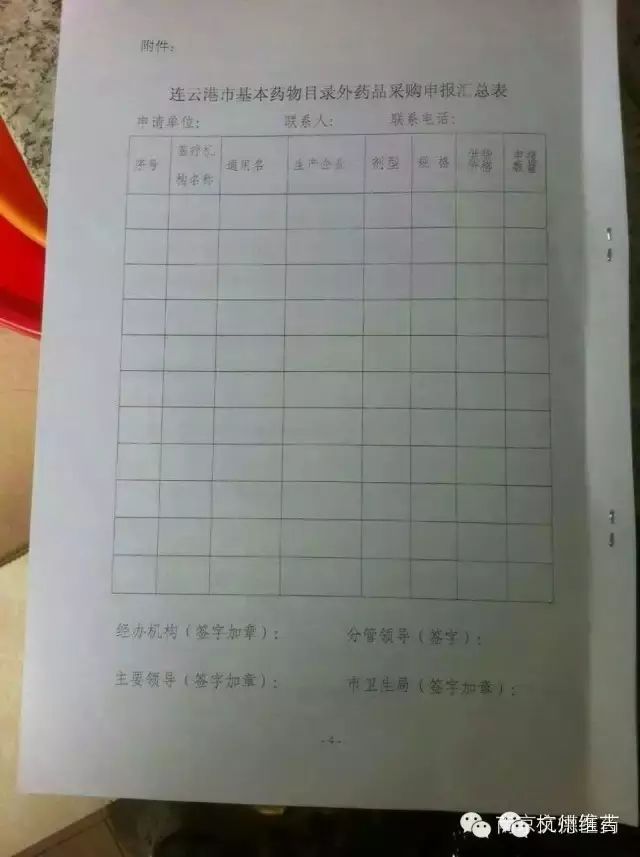 附件:
连云港市基本药物目录外药品采购申报汇总表
申请单位: 联系人: 联系电话:
序号 医疗机构名称 通用名 生产企业 剂型 规格 供货价格 申报数量
经办机构(签字加章): 分管领导(签字):
主要领导(签字加章): 市卫生局(签字加章):
-4-